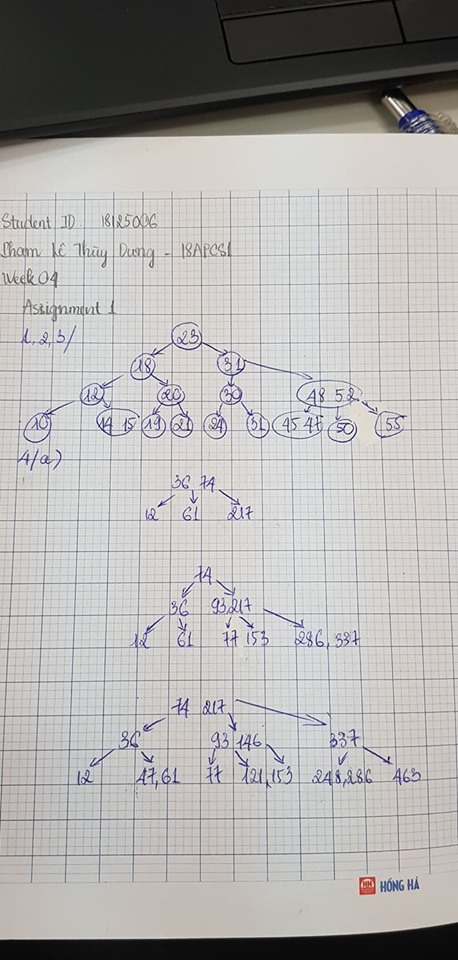 Student ID 18125006
Pham Lê Thùy Dương - 18APCS1
Week 04
Assignment 1
1, 2, 3/
23
18 31
12 20 30 48 52
10 14 15 19 21 24 31 45 47 50 55
4/a)
36 74
12 61 217
74
36 93,217
12 61 77 153 286, 337
74 217
36 93 146 337
12 47,61 77 121,153 248,286 463
HỒNG HÀ